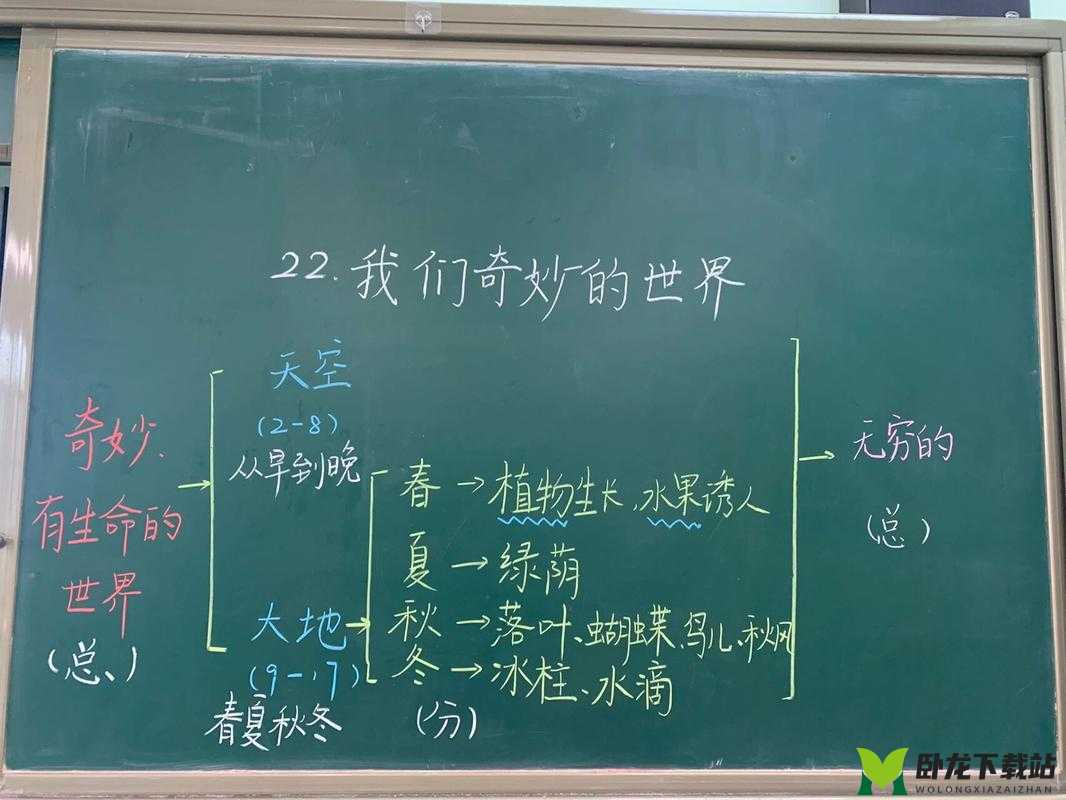 22.我们奇妙的世界
奇妙、
有生命的
世界
(总、)
天空
(2-8)
从早到晚
大地
(9-17)
春夏秋冬
春→植物生长、水果诱人
夏→绿荫
秋→落叶、蝴蝶、鸟儿、秋风
冬→冰柱、水滴
(分)
无穷的
(总)
卧龙下载站
WOLONGXIAZAIZHAN